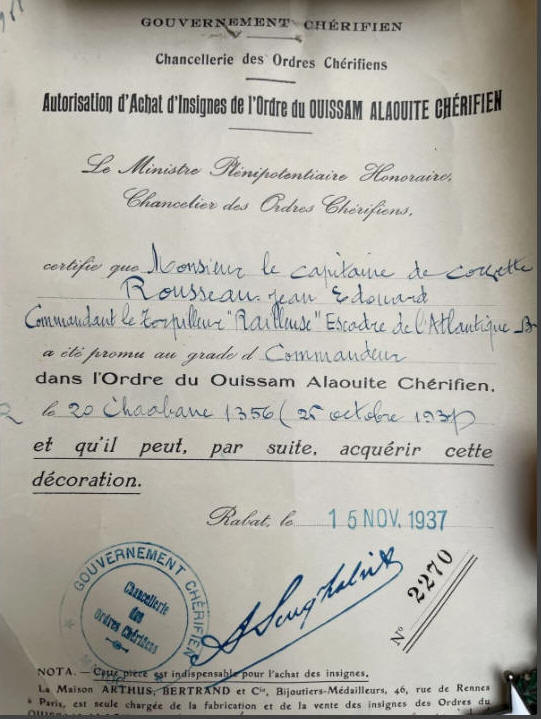 GOUVERNEMENT CHÉRIFIEN
Chancellerie des Ordres Chérifiens
Autorisation d'Achat d'Insignes de l'Ordre du OUISSAM ALAOUITE CHÉRIFIEN
Le Ministre Plénipotentiaire Honoraire,
Chancelier des Ordres Chérifiens,
certifie que Monsieur le capitaine de corvette
Rousseau Jean Edouard
Commandant le torpilleur "Railleuse" Escadre de l'Atlantique
a été promu au grade d Commandeur
dans l'Ordre du Ouissam Alaouite Chérifien.
le 20 Chaabane 1356 (25 octobre 1937)
et qu'il peut, par suite, acquérir cette
décoration.
Rabat, le 15 NOV. 1937
GOUVERNEMENT CHÉRIFIEN
Chancellerie
des
Ordres Chérifiens
N° 2270
NOTA. — Cette pièce est indispensable pour l'achat des insignes.
La Maison ARTHUS, BERTRAND et Cie, Bijoutiers-Médailleurs, 46, rue de Rennes
à Paris, est seule chargée de la fabrication et de la vente des insignes des Ordres du